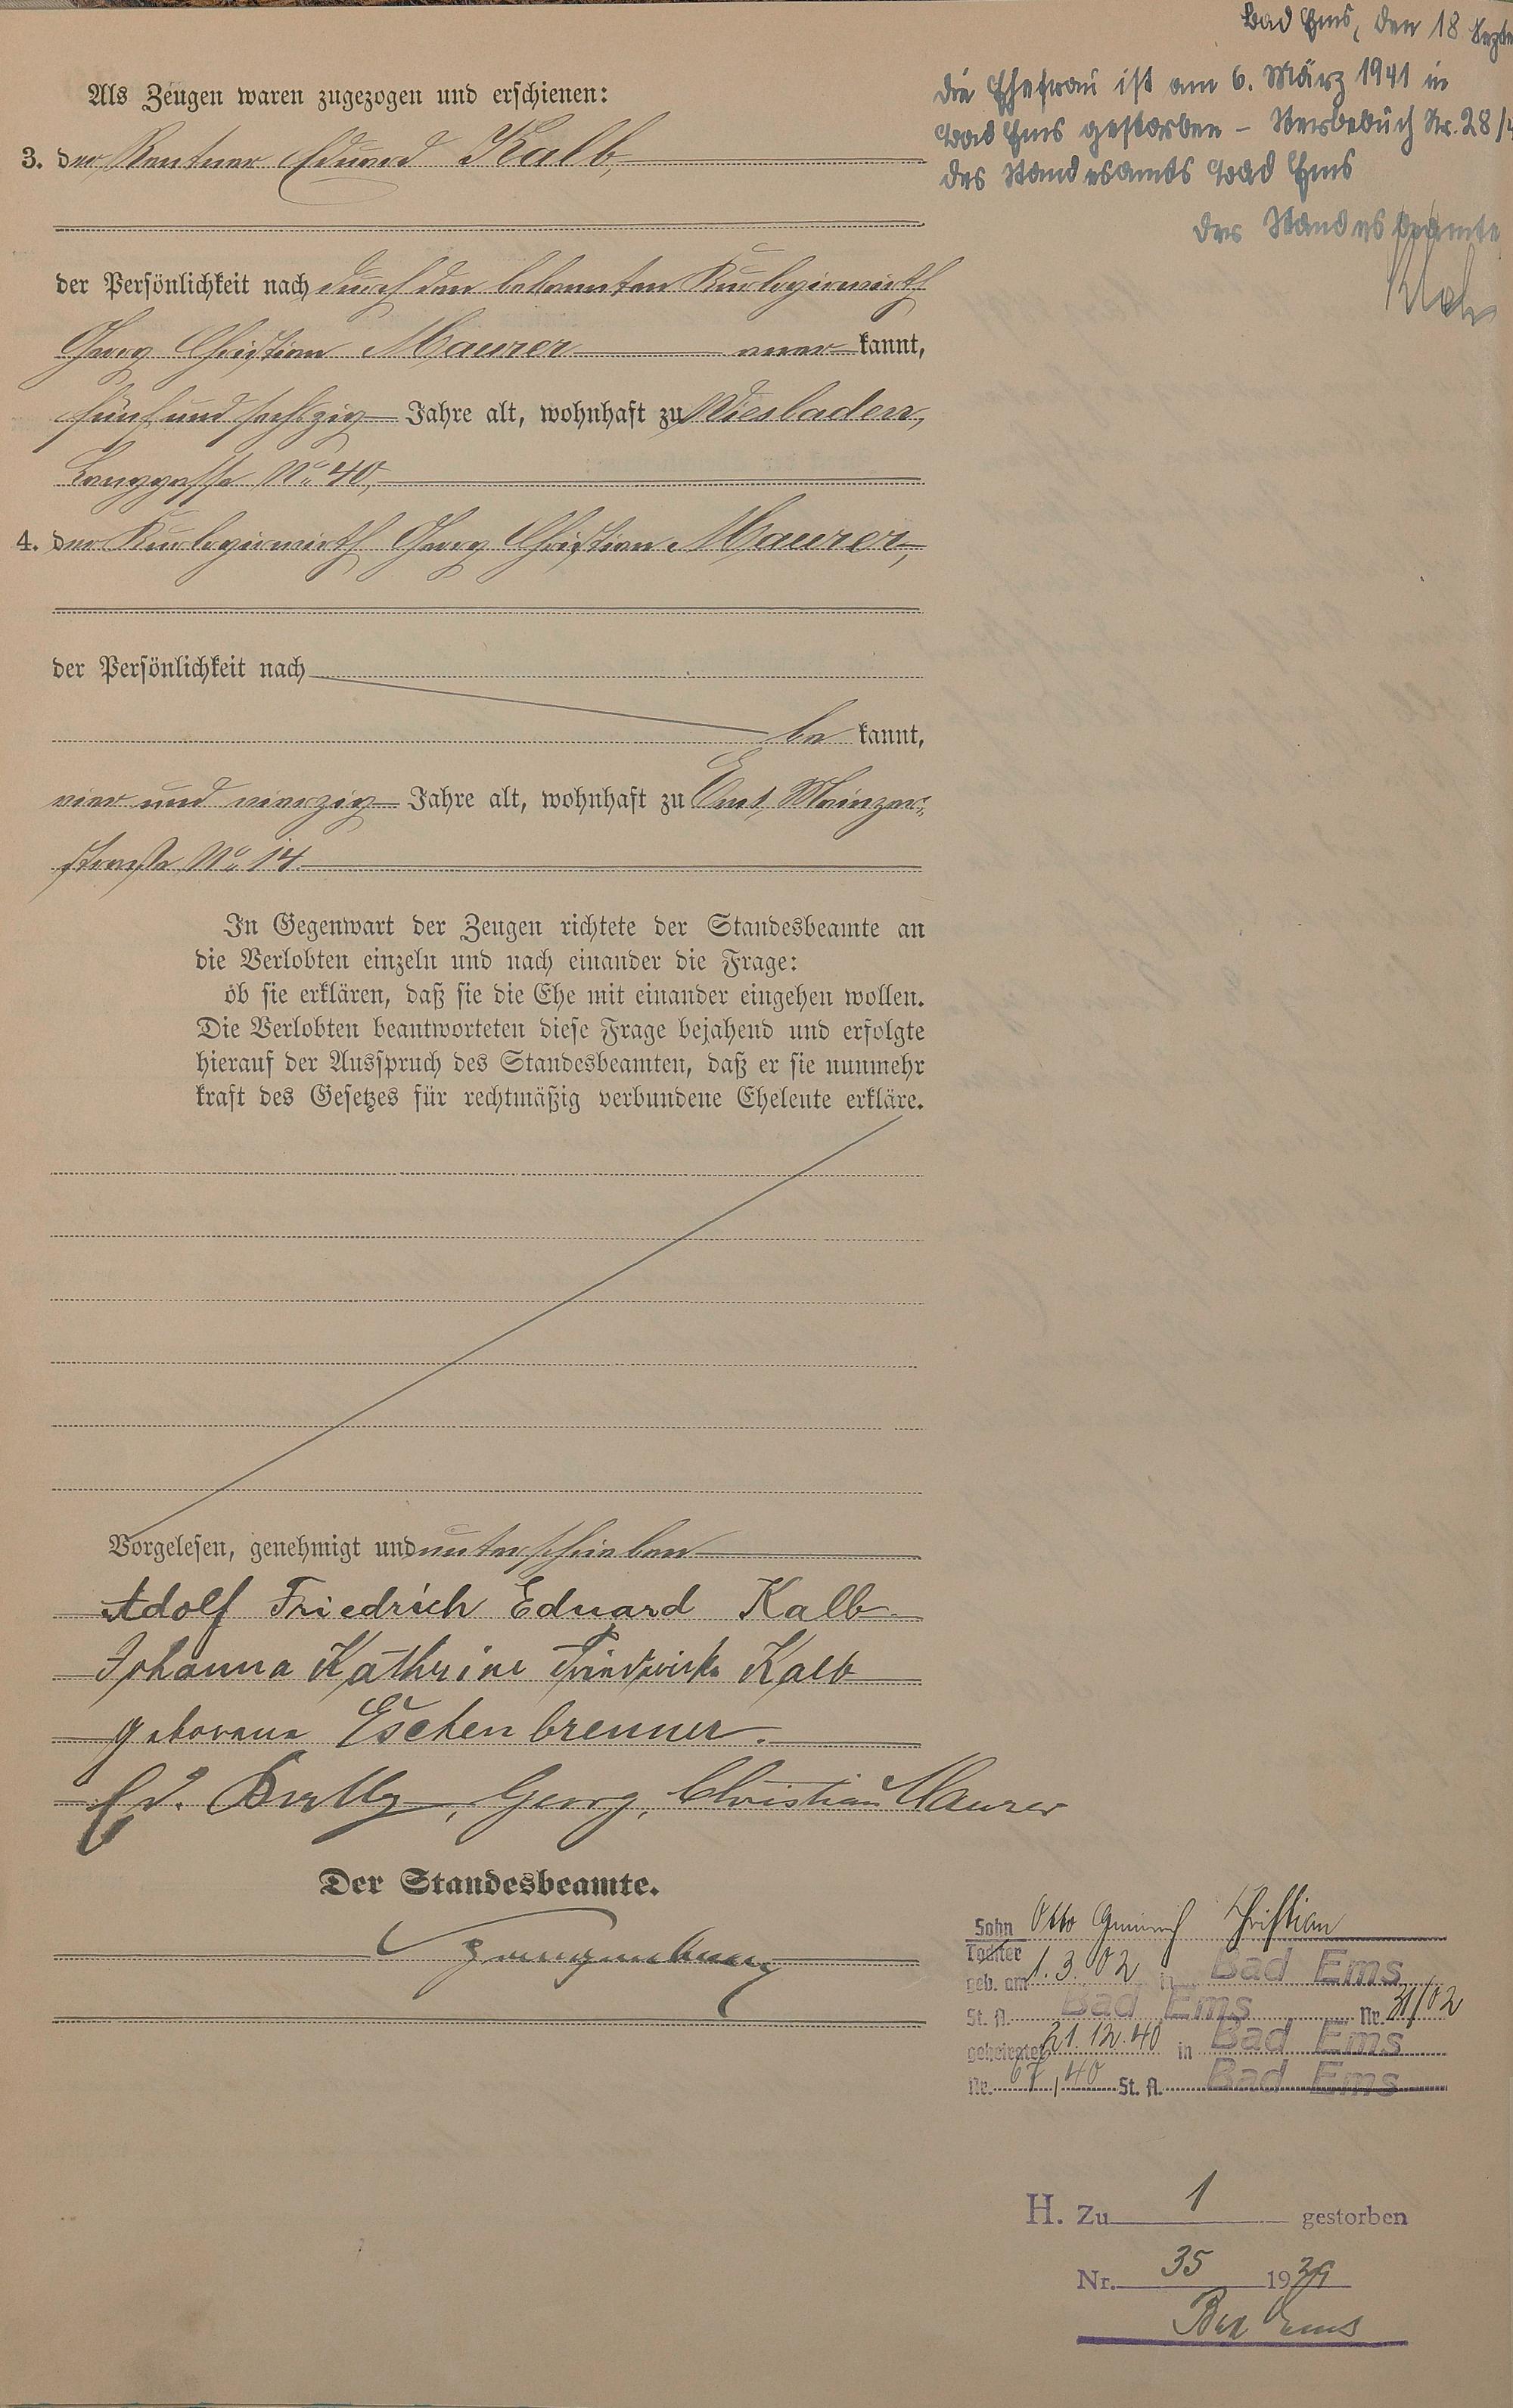 Als Zeugen waren zugezogen und erschienen:
3. der Rentner Eduard Kalb,
der Persönlichkeit nach durch den bekannten Kurlogirwirth
Georg Christian Maurer aner kannt,
fünf und sechszig Jahre alt, wohnhaft zu Wiesbaden,
Langgasse No. 40,
4. der Kurlogirwirth Georg Christian Maurer,
der Persönlichkeit nach
be kannt,
vier und vierzig Jahre alt, wohnhaft zu Ems, Mainzer-
straße No. 14.
In Gegenwart der Zeugen richtete der Standesbeamte an
die Verlobten einzeln und nach einander die Frage:
ob sie erklären, daß sie die Ehe mit einander eingehen wollen.
Die Verlobten beantworteten diese Frage bejahend und erfolgte
hierauf der Ausspruch des Standesbeamten, daß er sie nunmehr
kraft des Gesetzes für rechtmäßig verbundene Eheleute erkläre.
Vorgelesen, genehmigt und unterschrieben
Adolf Friedrich Eduard Kalb
Johanna Kathrine Friedricke Kalb
geborene Eschenbrenner.
Ed. Georg, Christian Maurer
Der Standesbeamte.
Bad Ems, den 18.
Die Ehefrau ist am 6. März 1941 in
Bad Ems gestorben – Sterbebuch Nr. 28/
des Standesamts Bad Ems
Der Standesbeamte
Sohn Otto Heinrich Christian
Tochter
geb. am 1. 3. 02 in Bad Ems
St. A. Bad Ems Nr. 31/02
geheiratet 21. 12. 40 in Bad Ems
Nr. 67 / 40 St. A. Bad Ems
H. Zu 1 gestorben
Nr. 35 1939
Bad Ems